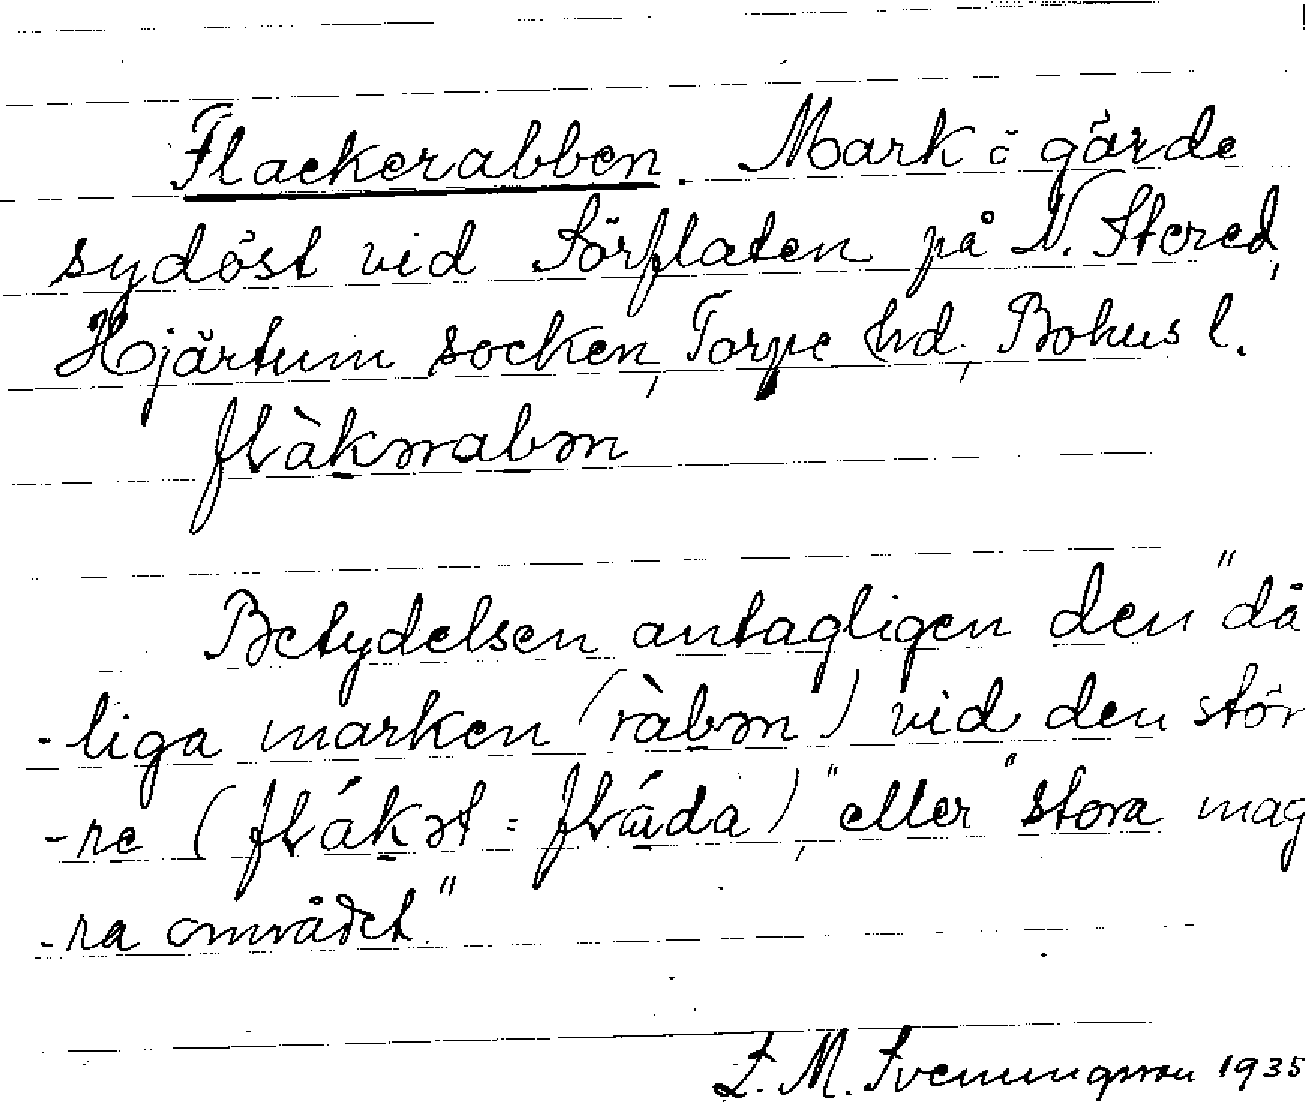 Flackerabben. Mark i gärde
sydöst vid Sörflaten på N. Stered,
Hjärtum socken, Torpe hd, Bohus l.
flàkərabən
Betydelsen antagligen den "då
-liga marken (ràbən) vid den stör
-re (flákət = flåda)," eller "stora mag
-ra området."
E. M. Svenungsson 1935